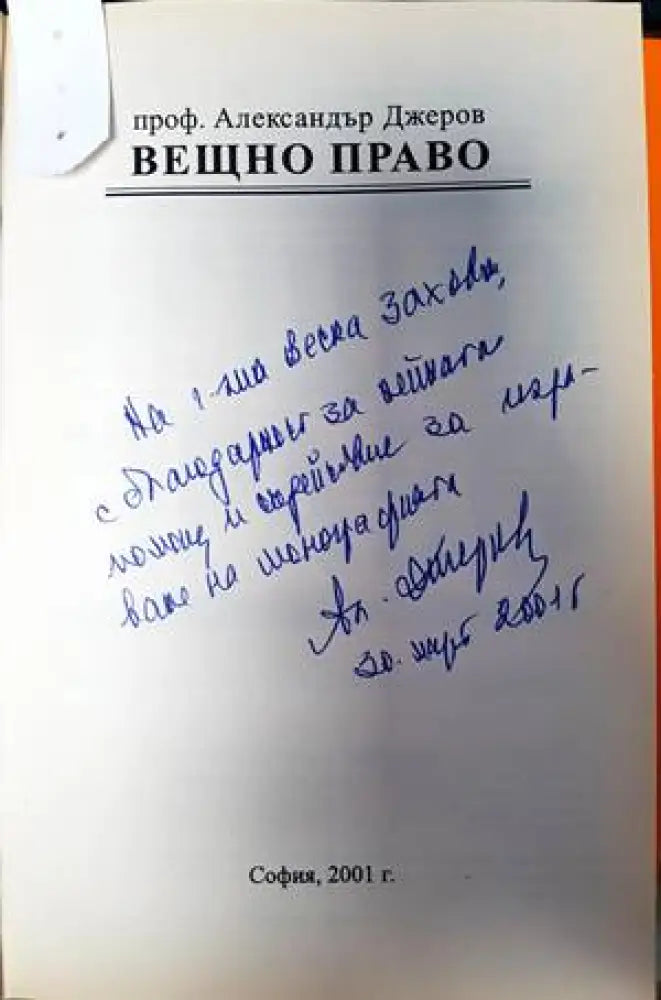 проф. Александър Джеров
ВЕЩНО ПРАВО
На г-жа Веска
с благодарност за нейната
помощ и съдействие за изра-
ване на монографията
Ал. Джеров
30. март 2001 г.
София, 2001 г.